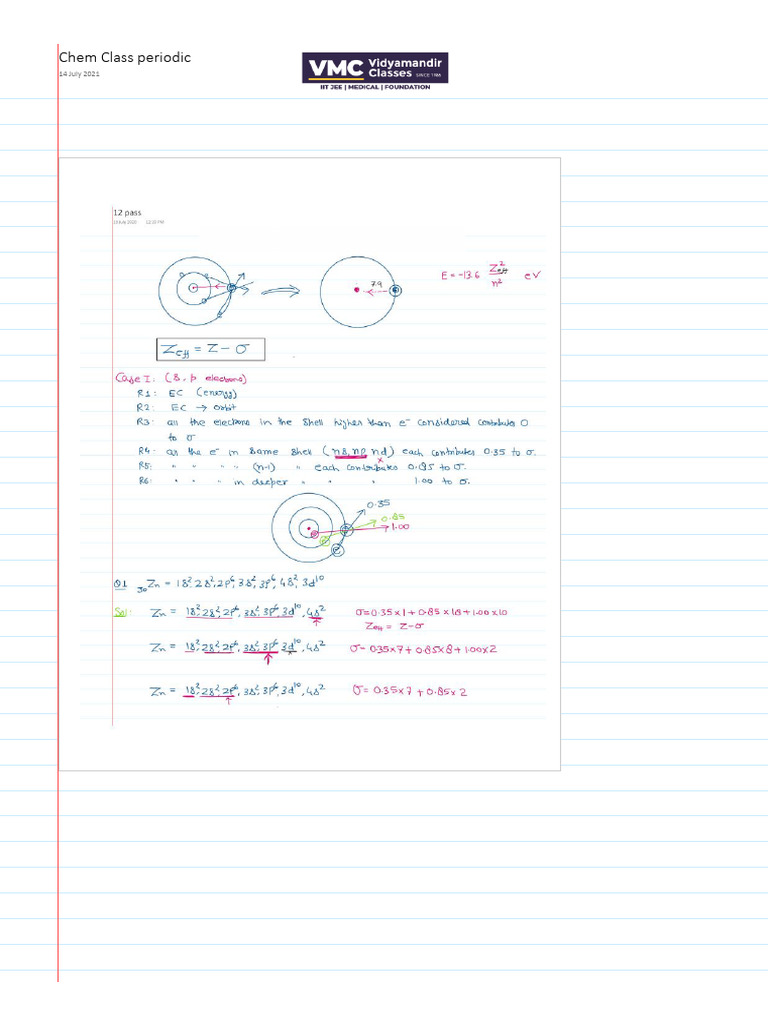 Chem Class periodic
14 July 2021
VMC Vidyamandir Classes SINCE 1986
IIT JEE | MEDICAL | FOUNDATION
12 pass
12:20 PM
7.9
E = -13.6 Z²eff/n² eV
Zeff = Z - σ
Case I: (s, p electrons)
R1: EC (energy)
R2: EC → orbit
R3: all the electrons in the shell higher than e⁻ considered contributes 0
to σ
R4: all the e⁻ in same shell (ns, np nd) each contributes 0.35 to σ.
x
R5: " " " " (n-1) " each contributes 0.85 to σ.
R6: " " " in deeper " " " 1.00 to σ.
0.35
0.85
1.00
Q1 ₃₀Zn = 1s², 2s², 2p⁶, 3s², 3p⁶, 4s², 3d¹⁰
Sol: Zn = 1s², 2s², 2p⁶, 3s², 3p⁶, 3d¹⁰, 4s² σ = 0.35 x 1 + 0.85 x 18 + 1.00 x 10
Zeff = Z - σ
Zn = 1s², 2s², 2p⁶, 3s², 3p⁶, 3d¹⁰, 4s² σ - 0.35x7 + 0.85x8 + 1.00x2
x
Zn = 1s², 2s², 2p⁶, 3s², 3p⁶, 3d¹⁰, 4s² σ = 0.35x7 + 0.85x2